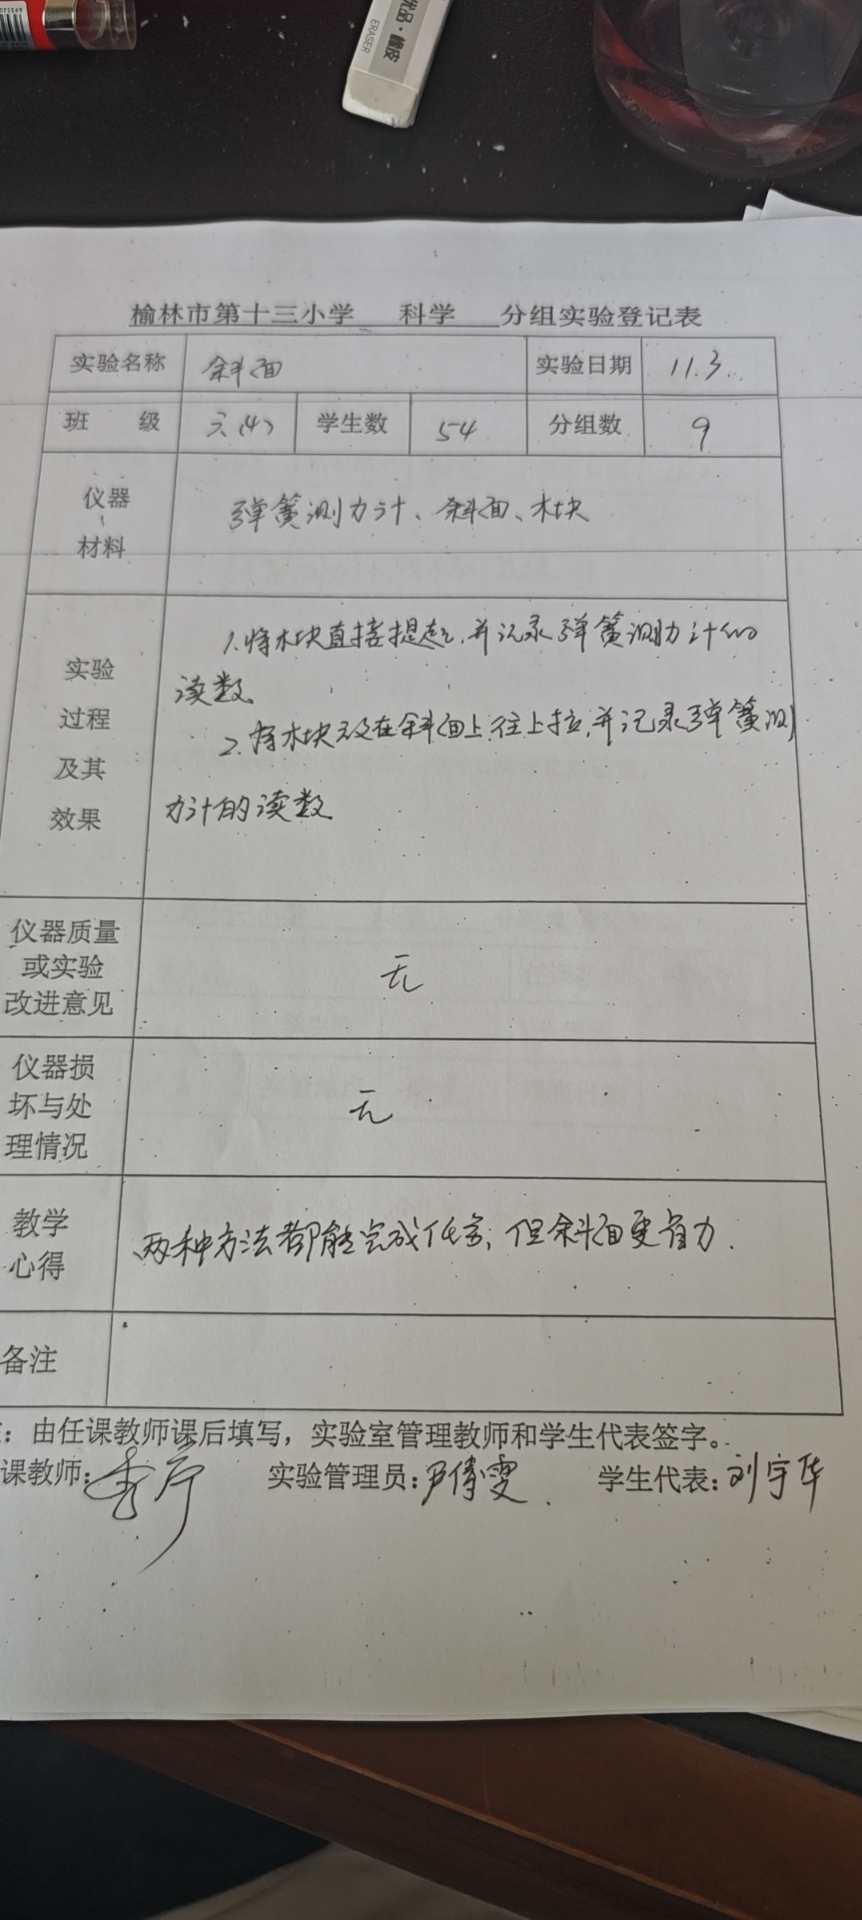 优品·橡皮
ERASER
榆林市第十三小学 科学 分组实验登记表
实验名称 斜面 实验日期 11.3.
班 级 六(4) 学生数 54 分组数 9
仪器
、
材料
弹簧测力计、斜面、木块
实验
过程
及其
效果
1.将木块直接提起,并记录弹簧测力计的
读数
2.将木块放在斜面上往上拉,并记录弹簧测
力计的读数
仪器质量
或实验
改进意见
无
仪器损
坏与处
理情况
无
教学
心得
两种方法都能完成任务,但斜面更省力.
备注
:由任课教师课后填写,实验室管理教师和学生代表签字。
课教师: 实验管理员: 学生代表:刘宇华